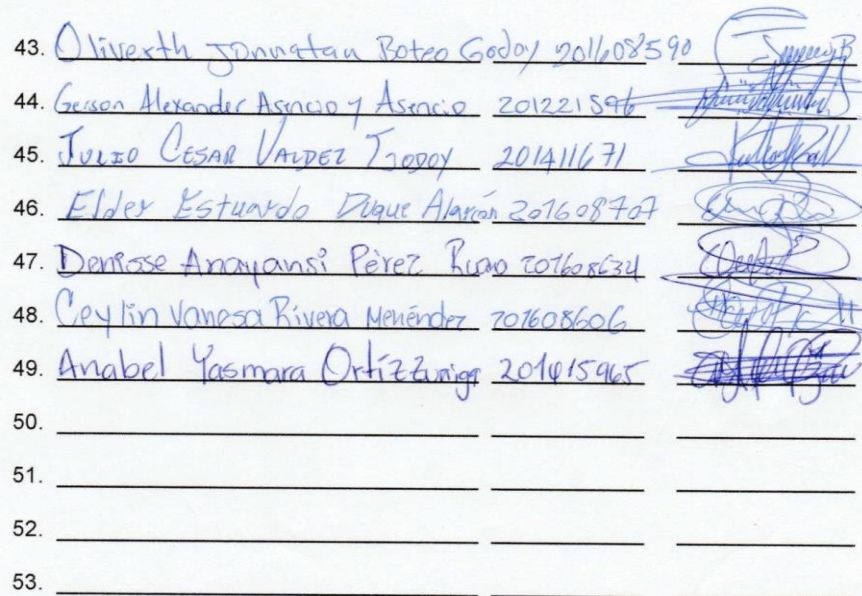 43. Oliverth Jonnatan Boteo Godoy 201608590
44. Gerson Alexander Asencio y Asencio 201221596
45. JULIO CESAR VALDEZ GODOY 201411671
46. Elder Estuardo Duque Alarcón 201608707
47. Denisse Anayansi Pèrez 201608634
48. Ceylin Vanesa Rivera Menéndez 201608606
49. Anabel Yasmara Ortíz Zuniga 201415965
50.
51.
52.
53.